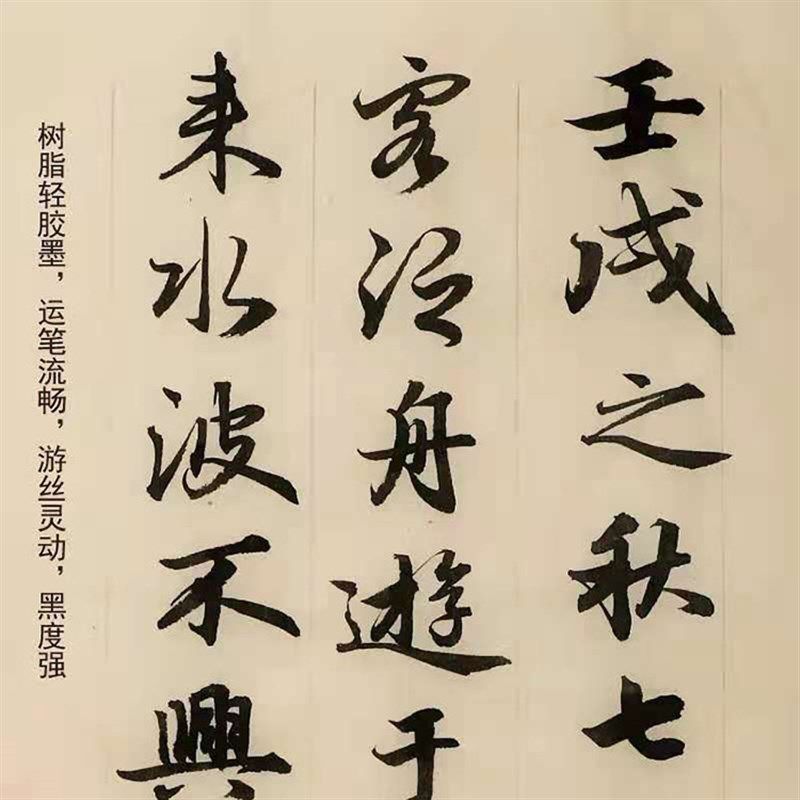 壬戌之秋七
客泛舟遊于
来水波不興
树脂轻胶墨，运笔流畅，游丝灵动，黑度强